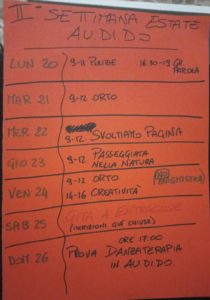 II° SETTIMANA ESTATE
AU.DI.DO
LUN 20 9-11 PULIZIE 16:30-19 GR. PAROLA
MAR 21 9-12 ORTO
MER 22 9-12 SVOLTIAMO PAGINA
GIO 23 9-12 PASSEGGIATA NELLA NATURA
VEN 24 9-12 ORTO (NO ENIGMISTICA)
14-16 CREATIVITÀ
SAB 25 GITA A
(ISCRIZIONI GIÀ CHIUSE)
DOM 26 ORE 17.00
PROVA DANZATERAPIA
IN AU.DI.DO.